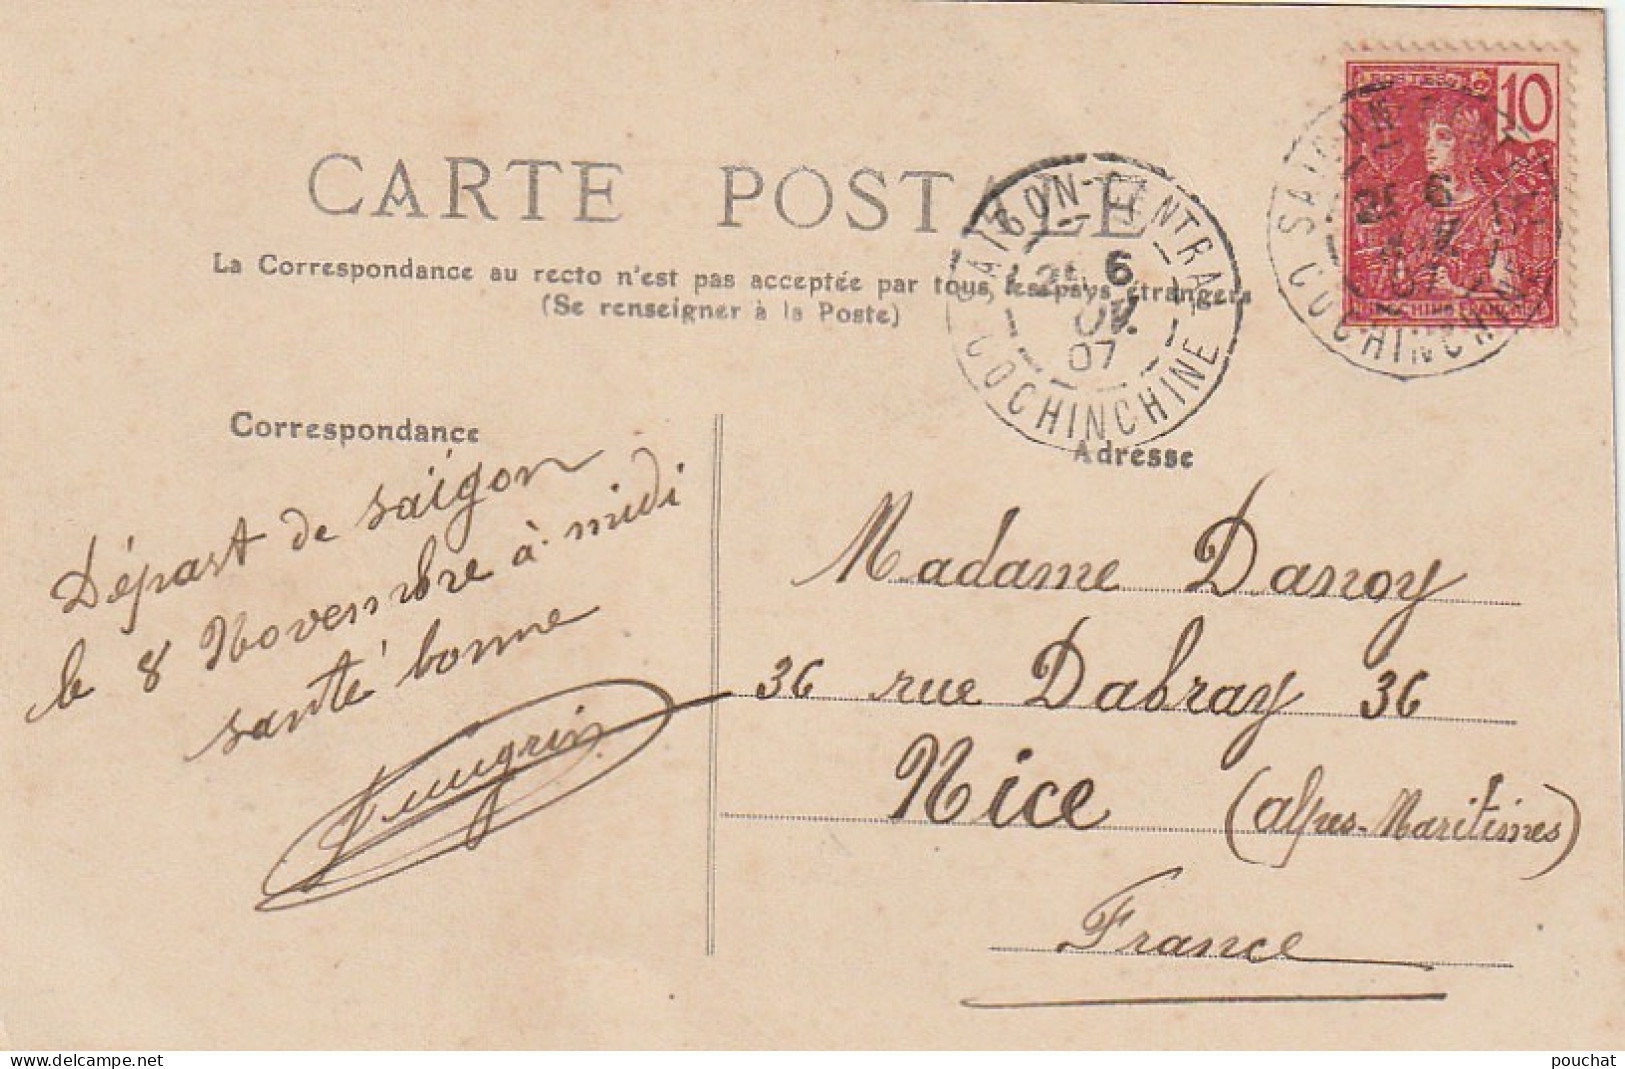 CARTE POSTALE
La Correspondance au recto n'est pas acceptée par tous les pays étrangers
(Se renseigner à la Poste)
SAIGON-CENTRAL
6
07
COCHINCHINE
10
SAIGON CENTRAL
6
07
COCHINCHINE
Correspondance
Départ de saïgon
le 8 Novembre à midi
santé bonne
Adresse
Madame Danoy
36 rue Dabray 36
Nice (alpes-Maritimes)
France
pouchat